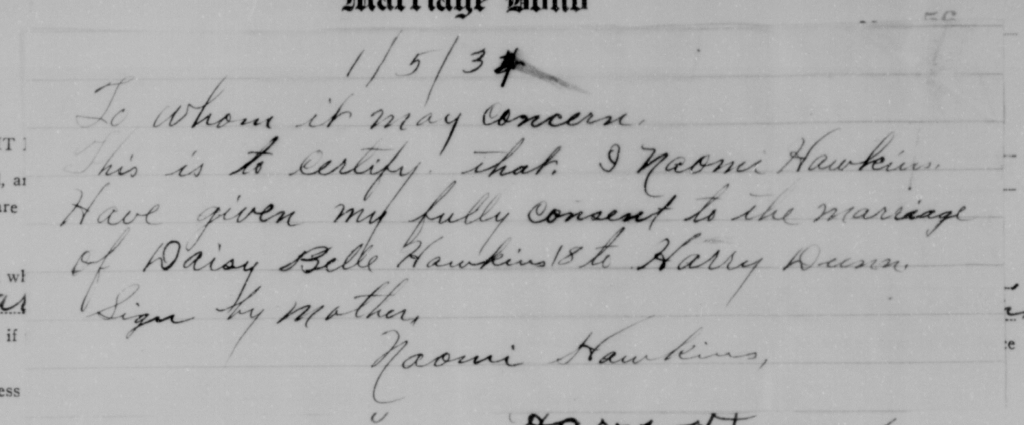 Marriage Bond
1/5/34
To whom it may concern.
This is to certify. that. I Naomi Hawkins.
Have given my fully consent to the marriage
of Daisy Belle Hawkins 18 to Harry Dunn.
Sign by mother.
Naomi Hawkins,